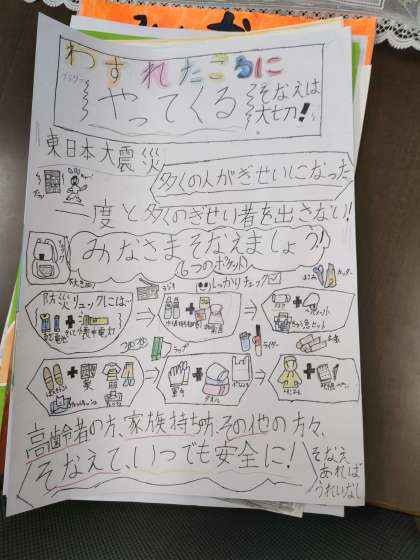 わすれたころに
グラグラ
やってくる
そなえは
大切!
東日本大震災
多くの人がぎせいになった
二度と多くのぎせい者を出さない!
みなさまそなえましょう♪
6つのポケット
しっかりチェック
カッター
防災リュックには…
ラジオ
かい中電灯
ラップ
ライター
軍手
タオル
高齢者の方、家族持ち方、その他の方々、
そなえて、いつでも安全に!
そなえ
あれば
うれいなし